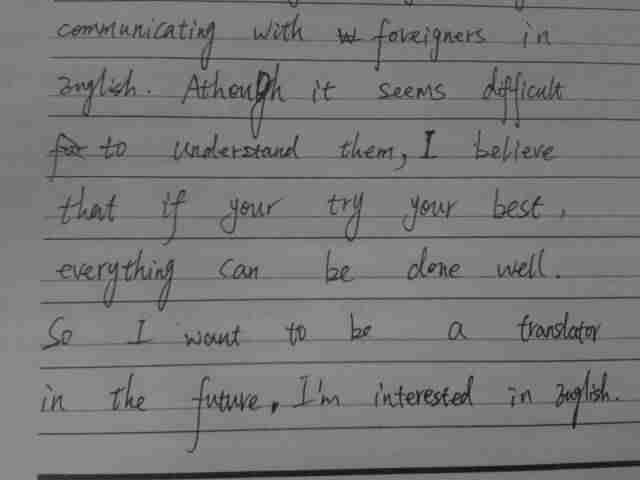 communicating with foreigners in
English. Athough it seems difficult
to understand them, I believe
that if your try your best,
everything can be done well.
So I want to be a translator
in the future. I'm interested in English.